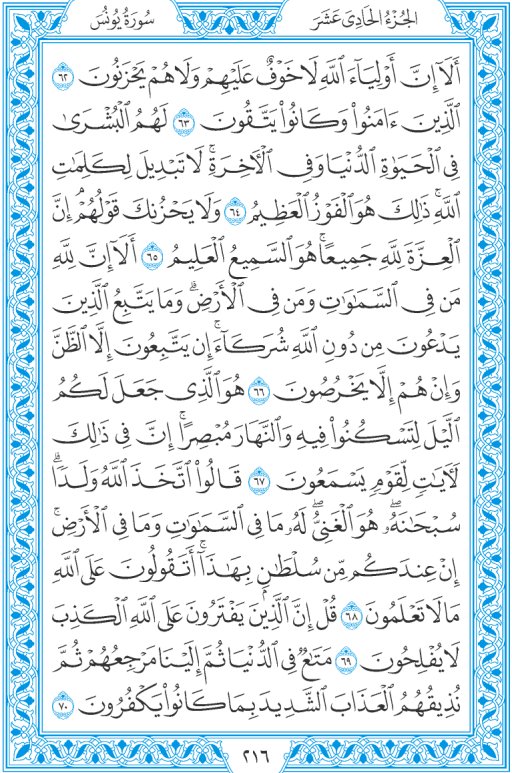 الجُزْءُ الحَادِى عَشَرَ
سُورَةُ يُونُسَ
أَلَآ إِنَّ أَوْلِيَآءَ ٱللَّهِ لَا خَوْفٌ عَلَيْهِمْ وَلَا هُمْ يَحْزَنُونَ ٦٢
ٱلَّذِينَ ءَامَنُوا۟ وَكَانُوا۟ يَتَّقُونَ ٦٣ لَهُمُ ٱلْبُشْرَىٰ
فِى ٱلْحَيَوٰةِ ٱلدُّنْيَا وَفِى ٱلْـَٔاخِرَةِ ۚ لَا تَبْدِيلَ لِكَلِمَٰتِ
ٱللَّهِ ۚ ذَٰلِكَ هُوَ ٱلْفَوْزُ ٱلْعَظِيمُ ٦٤ وَلَا يَحْزُنكَ قَوْلُهُمْ ۘ إِنَّ
ٱلْعِزَّةَ لِلَّهِ جَمِيعًا ۚ هُوَ ٱلسَّمِيعُ ٱلْعَلِيمُ ٦٥ أَلَآ إِنَّ لِلَّهِ
مَن فِى ٱلسَّمَٰوَٰتِ وَمَن فِى ٱلْأَرْضِ ۗ وَمَا يَتَّبِعُ ٱلَّذِينَ
يَدْعُونَ مِن دُونِ ٱللَّهِ شُرَكَآءَ ۚ إِن يَتَّبِعُونَ إِلَّا ٱلظَّنَّ
وَإِنْ هُمْ إِلَّا يَخْرُصُونَ ٦٦ هُوَ ٱلَّذِى جَعَلَ لَكُمُ
ٱلَّيْلَ لِتَسْكُنُوا۟ فِيهِ وَٱلنَّهَارَ مُبْصِرًا ۚ إِنَّ فِى ذَٰلِكَ
لَـَٔايَٰتٍ لِّقَوْمٍ يَسْمَعُونَ ٦٧ قَالُوا۟ ٱتَّخَذَ ٱللَّهُ وَلَدًا ۗ
سُبْحَٰنَهُۥ ۖ هُوَ ٱلْغَنِىُّ ۖ لَهُۥ مَا فِى ٱلسَّمَٰوَٰتِ وَمَا فِى ٱلْأَرْضِ ۚ
إِنْ عِندَكُم مِّن سُلْطَٰنٍۭ بِهَٰذَآ ۚ أَتَقُولُونَ عَلَى ٱللَّهِ
مَا لَا تَعْلَمُونَ ٦٨ قُلْ إِنَّ ٱلَّذِينَ يَفْتَرُونَ عَلَى ٱللَّهِ ٱلْكَذِبَ
لَا يُفْلِحُونَ ٦٩ مَتَٰعٌ فِى ٱلدُّنْيَا ثُمَّ إِلَيْنَا مَرْجِعُهُمْ ثُمَّ
نُذِيقُهُمُ ٱلْعَذَابَ ٱلشَّدِيدَ بِمَا كَانُوا۟ يَكْفُرُونَ ٧٠
٢١٦